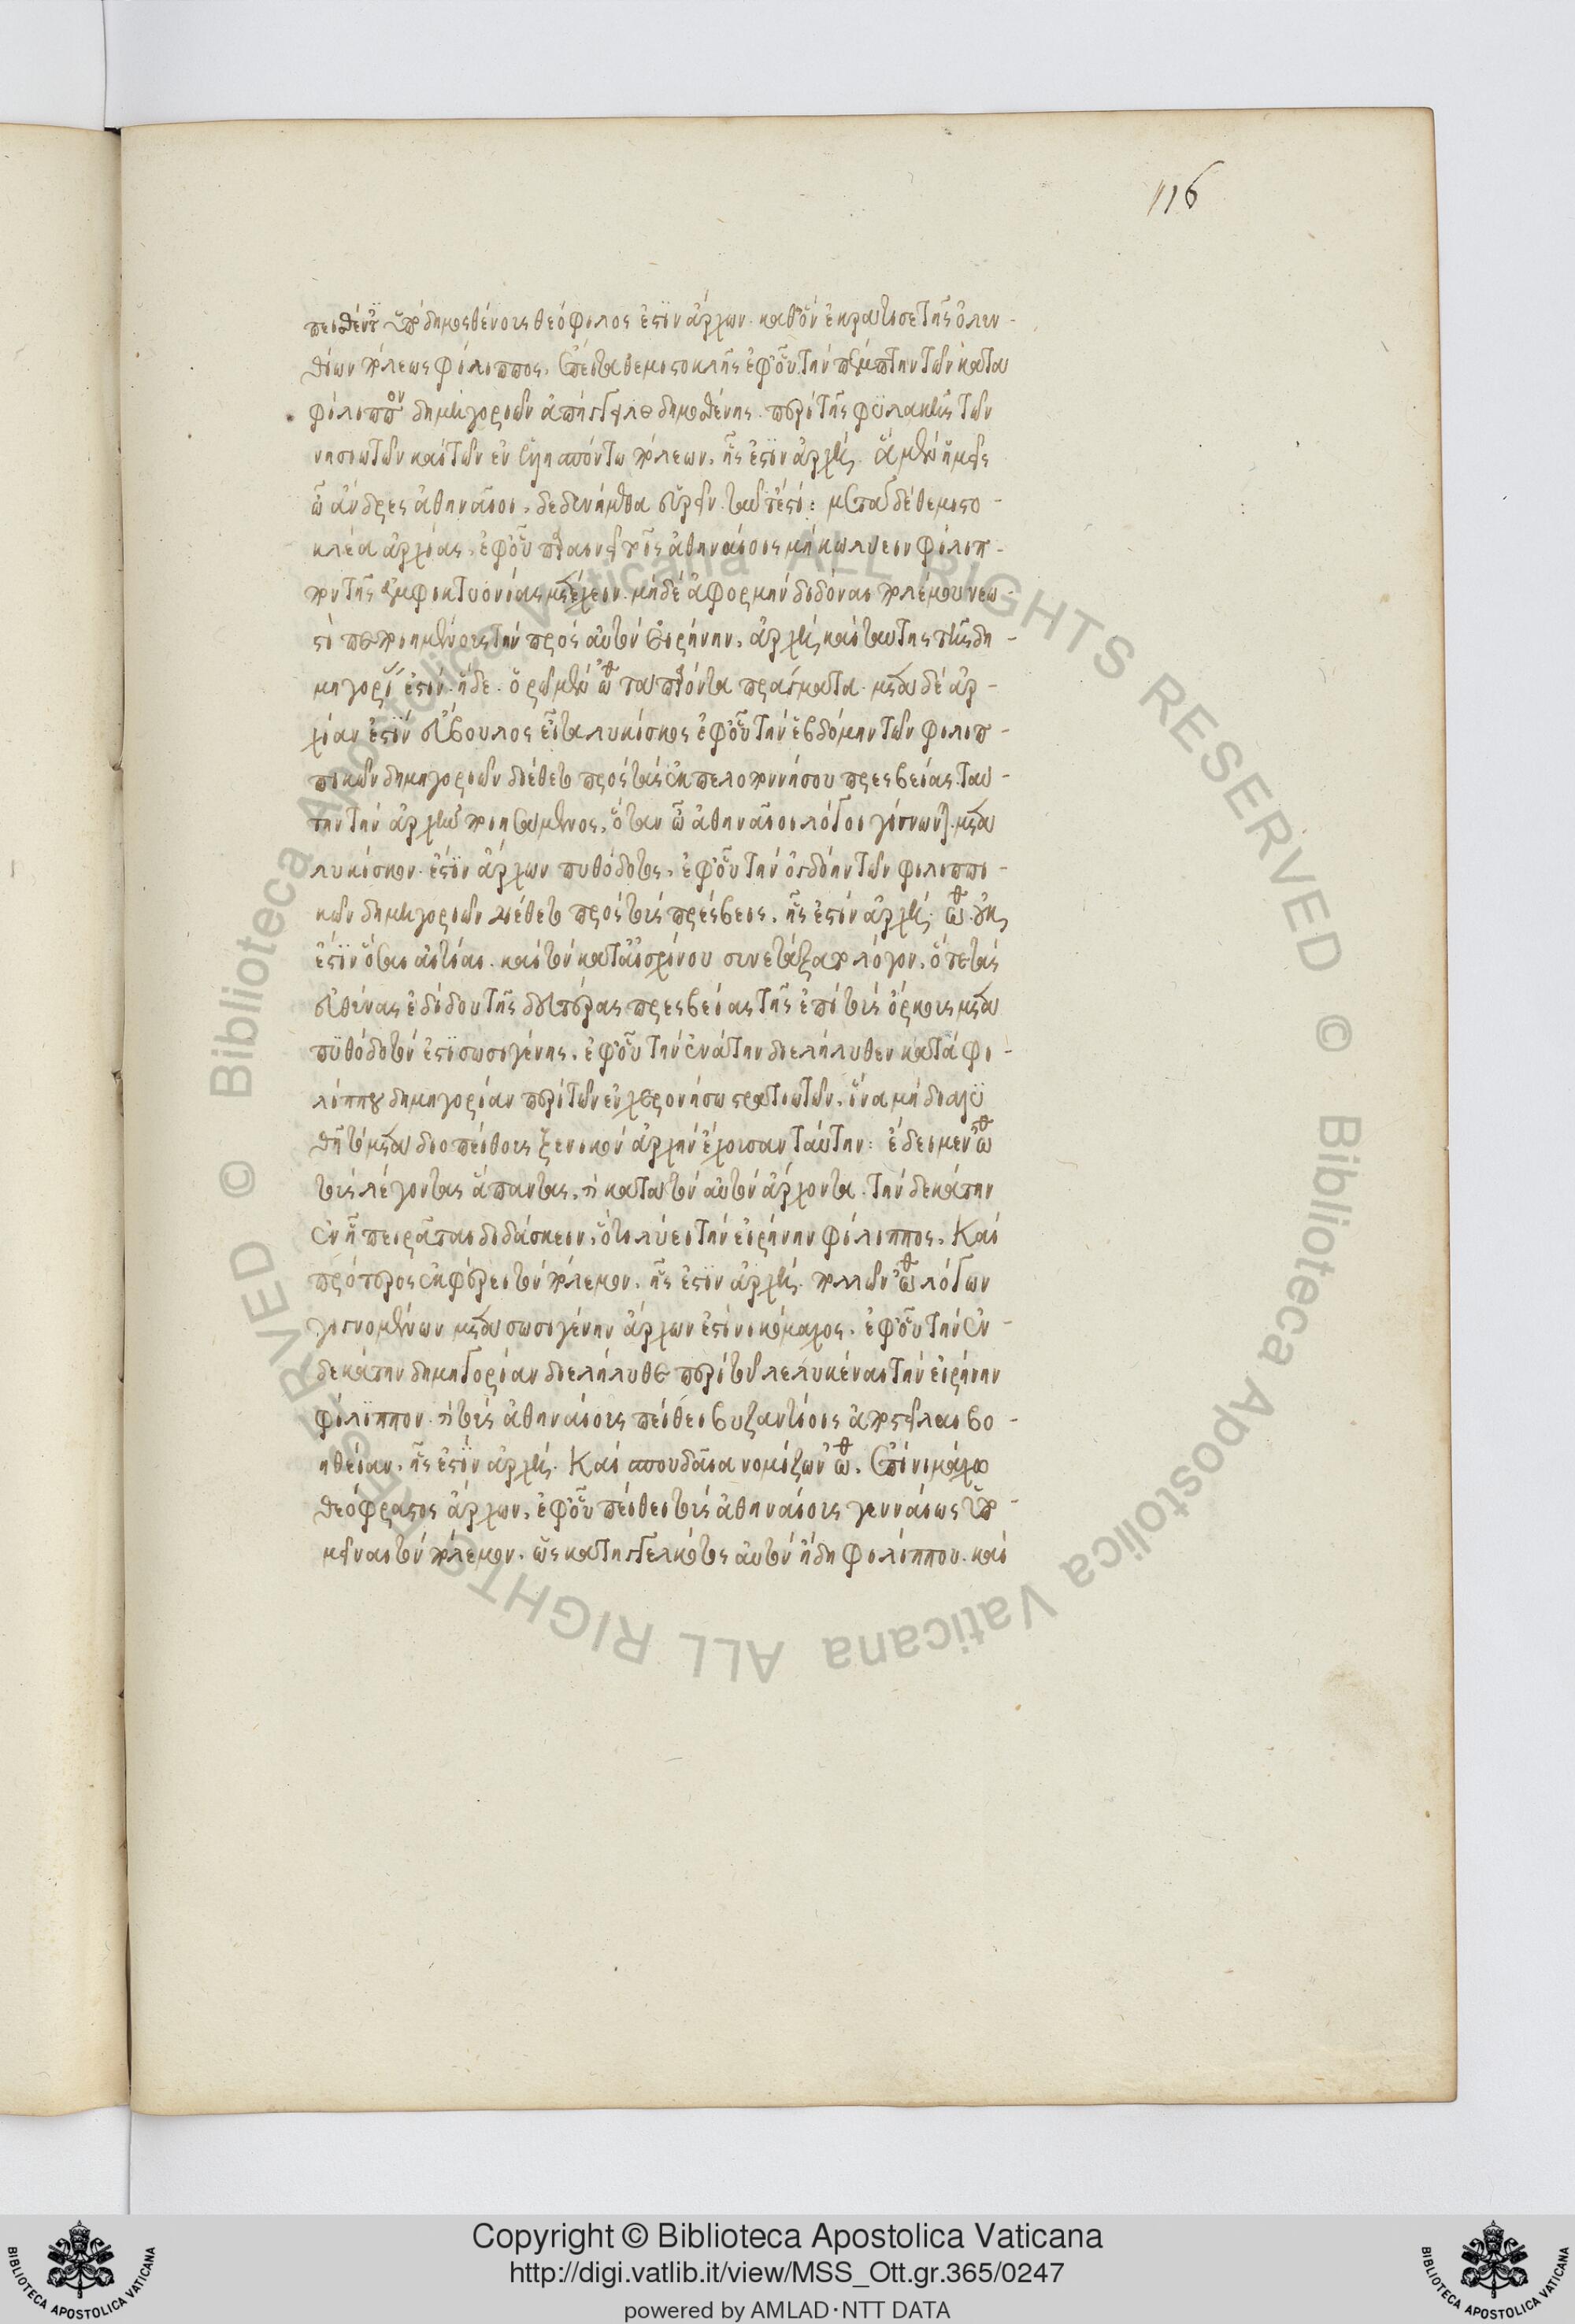 116
πεισθέντ ὑπὸ δημοσθένους θεόφιλος ἐστὶν ἄρχων. καθ' ὃν ἐκράτησε τῆς ὀλυν-
θίων πόλεως φίλιππος. ἔπειτα θεμιστοκλῆς ἐφ' οὗ τὴν πέμπτην τῶν κατὰ
φιλίππου δημηγοριῶν ἀπήγγειλε δημοσθένης. περὶ τῆς φυλακῆς τῶν
νησιωτῶν καὶ τῶν ἐν ἑλησπόντω πόλεων. ἧς ἐστὶν ἀρχή. ἃ μὲν ἡμεῖς
ὦ ἄνδρες ἀθηναῖοι, δεδυνήμεθα εὑρεῖν. ταῦτ' ἐστί: μετὰ δὲ θεμιστο-
κλέα ἀρχίας. ἐφ' οὗ παραινεῖ τοῖς ἀθηναίοις μὴ κωλύειν φίλιπ-
πον τῆς ἀμφικτυονίας μετέχειν. μηδὲ ἀφορμὴν διδόναι πολέμου νεω-
στὶ πεποιημένους τὴν πρὸς αὐτὸν εἰρήνην. ἀρχὴ καὶ ταύτης τῆς δη-
μηγορί ἐστίν. ἥδε. ὁρῶ μὲν ὦ τὰ παρόντα πράγματα. μετὰ δὲ ἀρ-
χίαν ἐστὶν εὔβουλος εἶτα λυκίσκος ἐφ' οὗ τὴν ἑβδόμην τῶν φιλιπ-
πικῶν δημηγοριῶν διέθετο πρὸς τὰς ἐκ πελοπονήσου πρεσβείας. ταύ-
την τὴν ἀρχὴν ποιησάμενος. ὅταν ὦ ἀθηναῖοι λόγοι γίγνωνται. μετὰ
λυκίσκον. ἐστὶν ἄρχων πυθόδοτος. ἐφ' οὗ τὴν ὀγδόην τῶν φιλιππι-
κῶν δημηγοριῶν διέθετο πρὸς τοὺς πρέσβεις. ἧς ἐστὶν ἀρχή. ὦ οὐκ
ἐστὶν ὅσαι αἰτίαι. καὶ τὸν κατ' αἰσχίνου συνετάξατο λόγον. ὅτε τὰς
εὐθύνας ἐδίδου τῆς δευτέρας πρεσβείας τῆς ἐπὶ τοὺς ὅρκους μετὰ
πυθόδοτόν ἐστὶ σωσιγένης. ἐφ' οὗ τὴν ἐνάτην διελήλυθεν κατὰ φι-
λίππου δημηγορίαν περὶ τῶν ἐν χερονήσω στρατιωτῶν. ἵνα μὴ διαλυ
θῇ τὸ μετὰ διοπείθους ξενικὸν ἀρχὴν ἔχουσαν ταύτην: ἔδει μὲν ὦ
τοὺς λέγοντας ἅπαντας. καὶ κατὰ τὸν αὐτὸν ἄρχοντα. τὴν δεκάτην
ἐν ᾗ πειρᾶται διδάσκειν. ὅτι λύει τὴν εἰρήνην φίλιππος. Καὶ
πρότερος ἐκφέρει τὸν πόλεμον. ἧς ἐστὶν ἀρχή. πολλῶν ὦ λόγων
γιγνομένων μετὰ σωσιγένην ἄρχων ἐστὶ νικόμαχος. ἐφ' οὗ τὴν ἐν-
δεκάτην δημηγορίαν διελήλυθε περὶ τοῦ λελυκέναι τὴν εἰρήνην
φίλιππον. καὶ τοὺς ἀθηναίους πείθει βυζαντίοις ἀποστεῖλαι βο-
ηθείαν. ἧς ἐστὶν ἀρχή. Καὶ σπουδαῖα νομίζων ὦ. ἐπὶ νιμάχω
θεόφραστος ἄρχων. ἐφ' οὗ πείθει τοὺς ἀθηναίους γενναίως ὑπο-
μεῖναι τὸν πόλεμον. ὡς κατηγγελκότος αὐτὸν ἤδη φιλίππου. καὶ
Copyright © Biblioteca Apostolica Vaticana
http://digi.vatlib.it/view/MSS_Ott.gr.365/0247
powered by AMLAD·NTT DATA
BIBLIOTECA APOSTOLICA VATICANA
BIBLIOTECA APOSTOLICA VATICANA
© Biblioteca Apostolica Vaticana ALL RIGHTS RESERVED
© Biblioteca Apostolica Vaticana ALL RIGHTS RESERVED